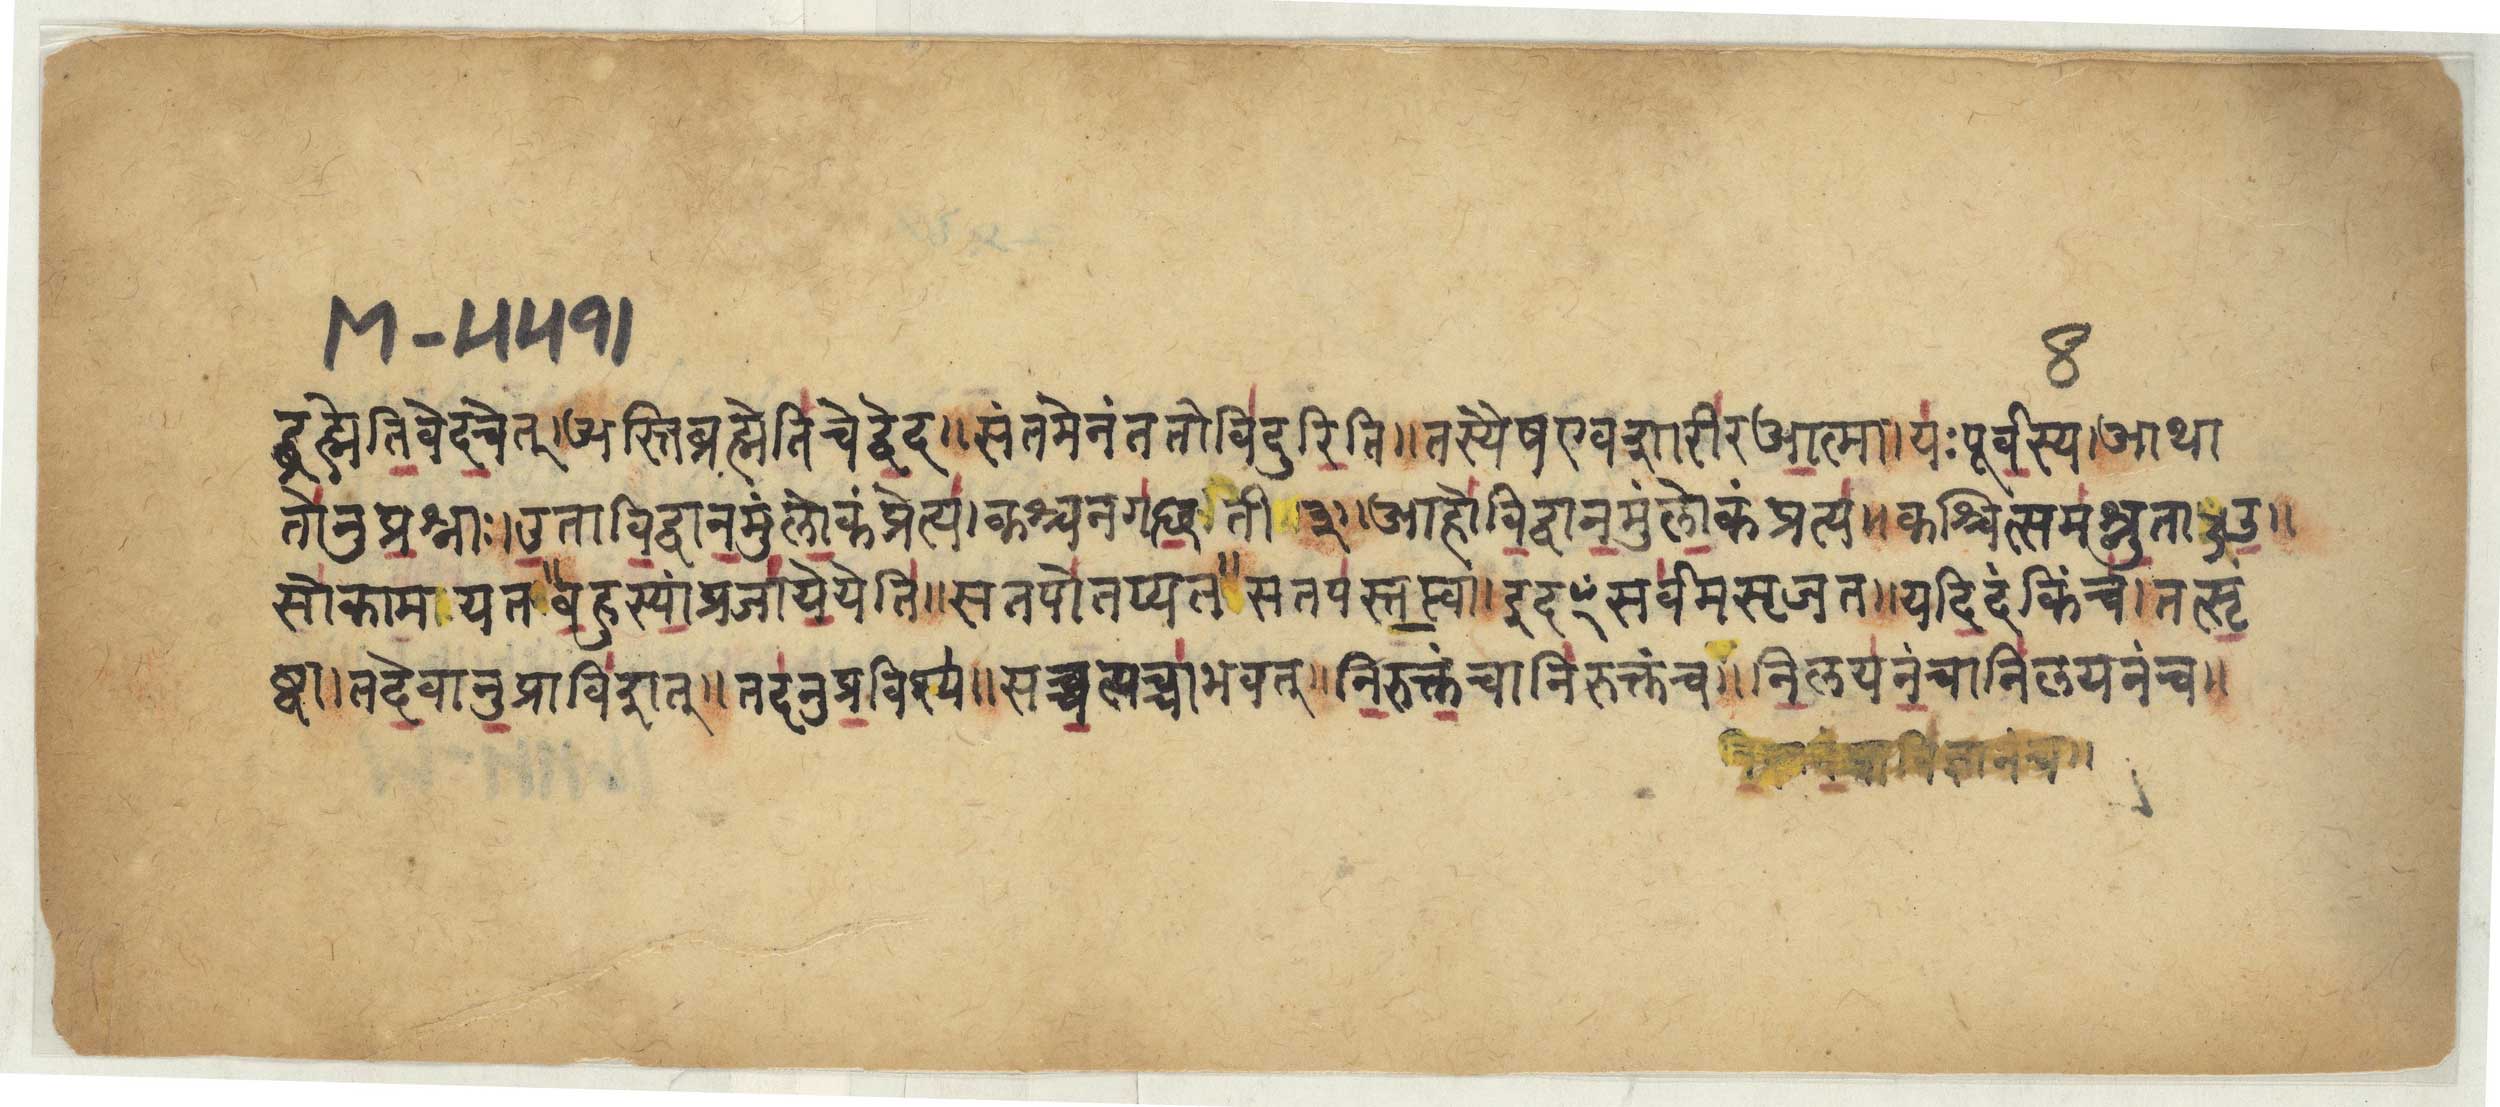 M-५५११
8
द्ब्रह्मेतिवेदचेत्।अस्तिब्रह्मेतिचेद्वेद॥संतमेनंततोविदुरिति॥तस्यैषएवशारीरआत्मा।यःपूर्वस्य।आथा
तोनुप्रश्नाः।उताविद्वानमुंलोकंप्रेत्य।कश्चनगछतीऽ३।आहोविद्वानमुंलोकंप्रत्य॥कश्चित्समश्नुताऽ३उ॥
सोकामायत॥बहुस्यांप्रजायेयेति॥सतपोतप्यत॥सतपस्तप्त्वा।इदꣳसर्वमसृजत॥यदिदंकिंच।तत्सृ
ष्ट्वा।तदेवानुप्राविशत्॥तदनुप्रविश्य॥सच्चत्यच्चाभवत्॥निरुक्तंचानिरुक्तंच॥निलयनंचानिलयनंच॥